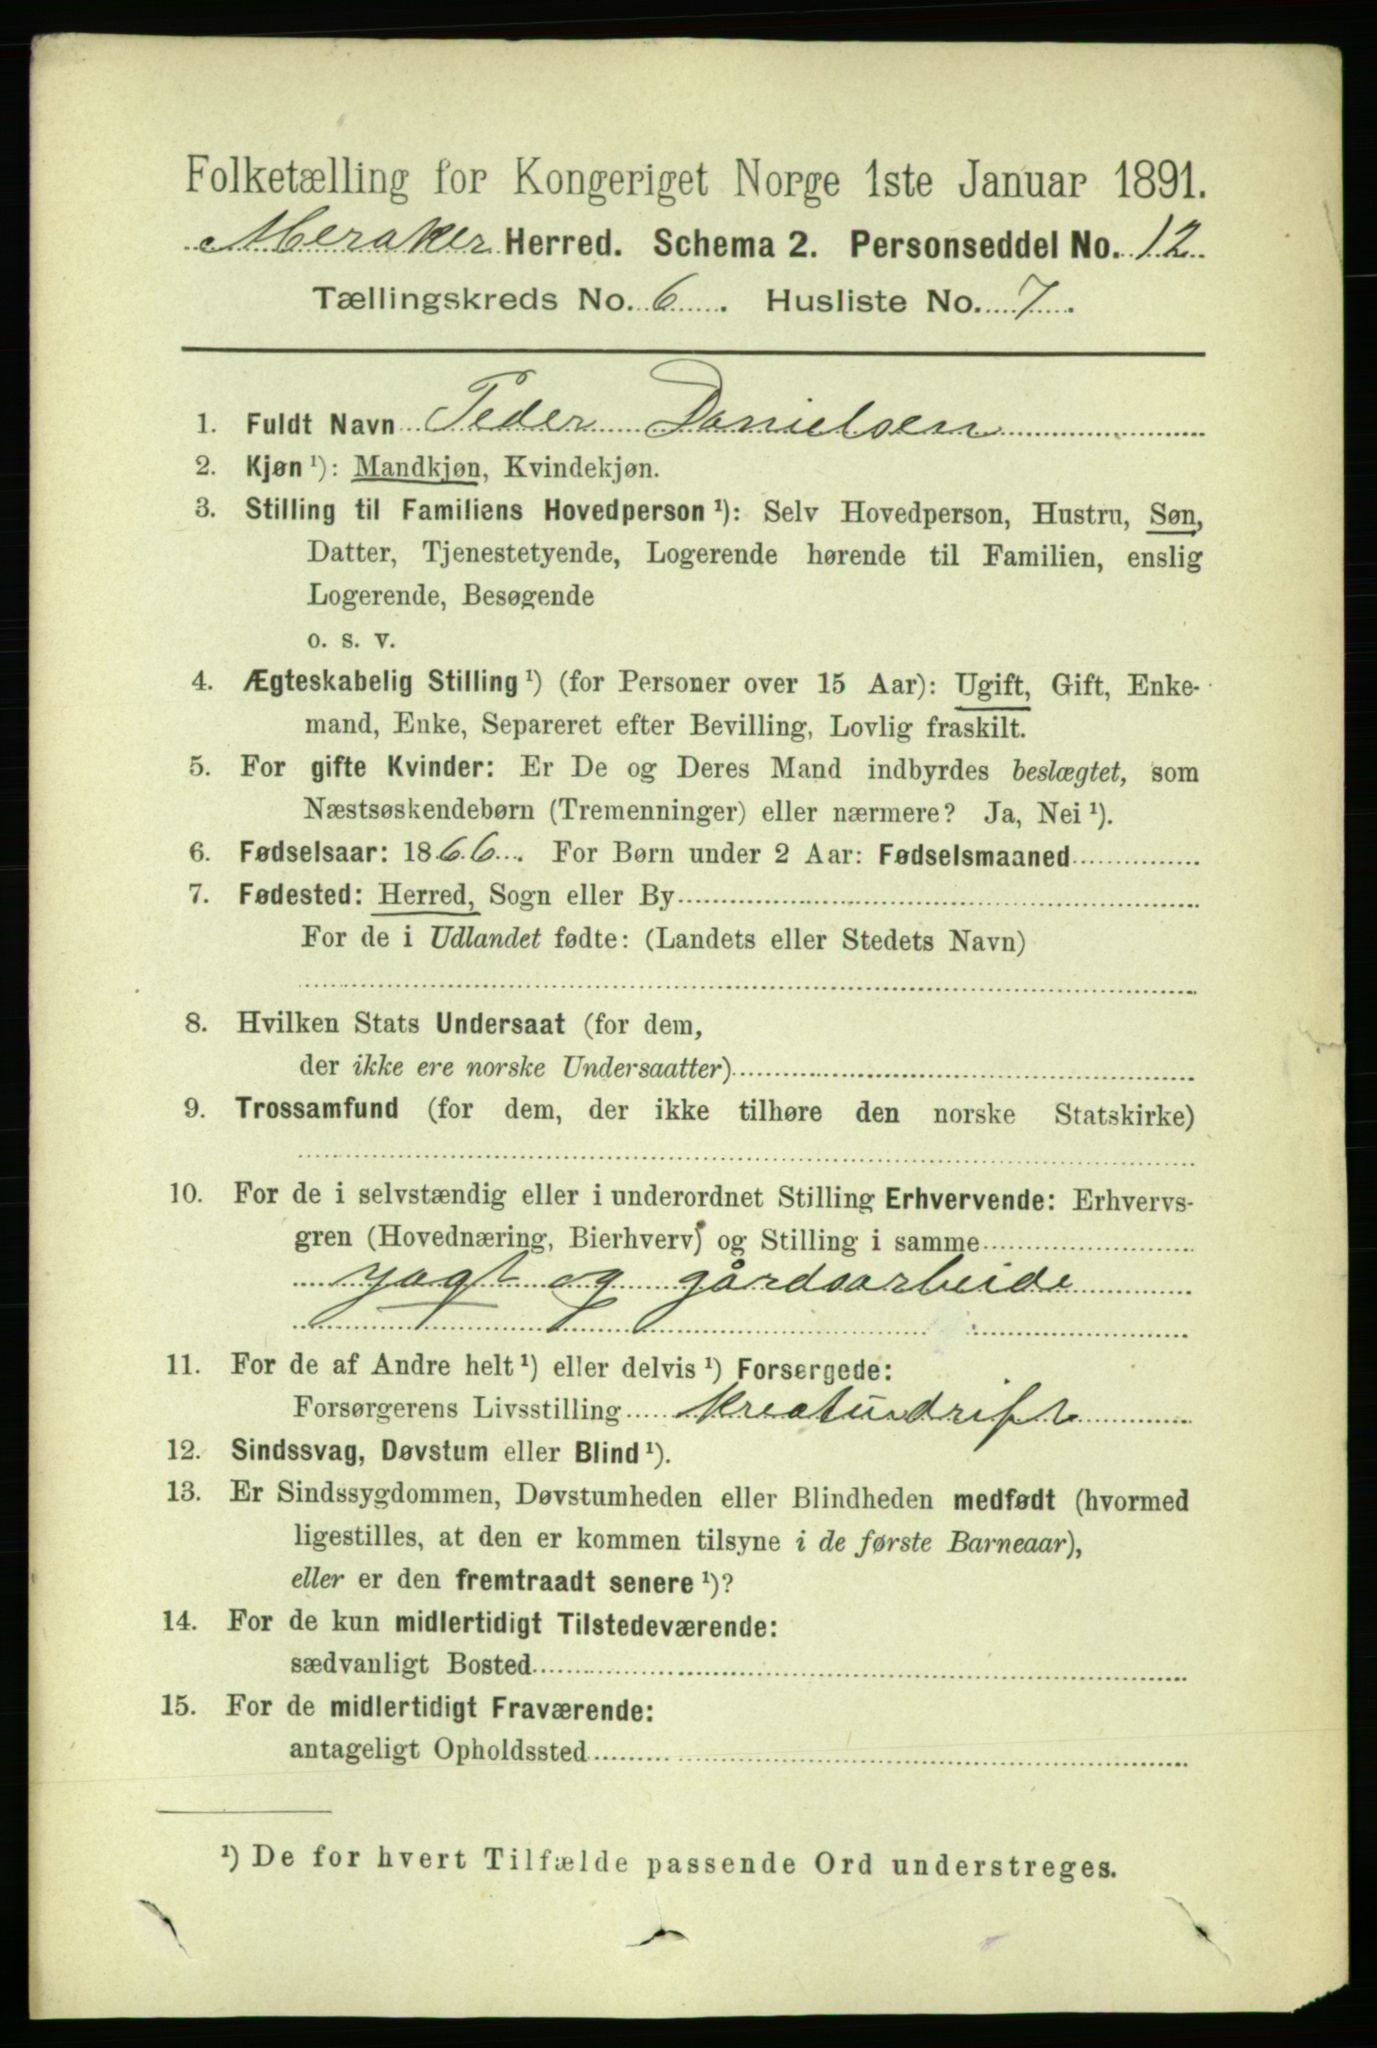 Folketælling for Kongeriget Norge 1ste Januar 1891.
Meraker Herred. Schema 2. Personseddel No. 12
Tællingskreds No. 6. Husliste No. 7.
1. Fuldt Navn Peder Danielsen
2. Kjøn ¹): Mandkjøn, Kvindekjøn.
3. Stilling til Familiens Hovedperson ¹): Selv Hovedperson, Hustru, Søn,
Datter, Tjenestetyende, Logerende hørende til Familien, enslig
Logerende, Besøgende
o. s. v.
4. Ægteskabelig Stilling ¹) (for Personer over 15 Aar): Ugift, Gift, Enke-
mand, Enke, Separeret efter Bevilling, Lovlig fraskilt.
5. For gifte Kvinder: Er De og Deres Mand indbyrdes beslægtet, som
Næstsøskendebørn (Tremenninger) eller nærmere? Ja, Nei ¹).
6. Fødselsaar: 1866. For Børn under 2 Aar: Fødselsmaaned
7. Fødested: Herred, Sogn eller By
For de i Udlandet fødte: (Landets eller Stedets Navn)
8. Hvilken Stats Undersaat (for dem,
der ikke ere norske Undersaatter)
9. Trossamfund (for dem, der ikke tilhøre den norske Statskirke)
10. For de i selvstændig eller i underordnet Stilling Erhvervende: Erhvervs-
gren (Hovednæring, Bierhverv) og Stilling i samme
yagt og gårdsarbeide
11. For de af Andre helt ¹) eller delvis ¹) Forsørgede:
Forsørgerens Livsstilling kreaturdrift
12. Sindssvag, Døvstum eller Blind ¹).
13. Er Sindssygdommen, Døvstumheden eller Blindheden medfødt (hvormed
ligestilles, at den er kommen tilsyne i de første Barneaar),
eller er den fremtraadt senere ¹)?
14. For de kun midlertidigt Tilstedeværende:
sædvanligt Bosted
15. For de midlertidigt Fraværende:
antageligt Opholdssted
¹) De for hvert Tilfælde passende Ord understreges.